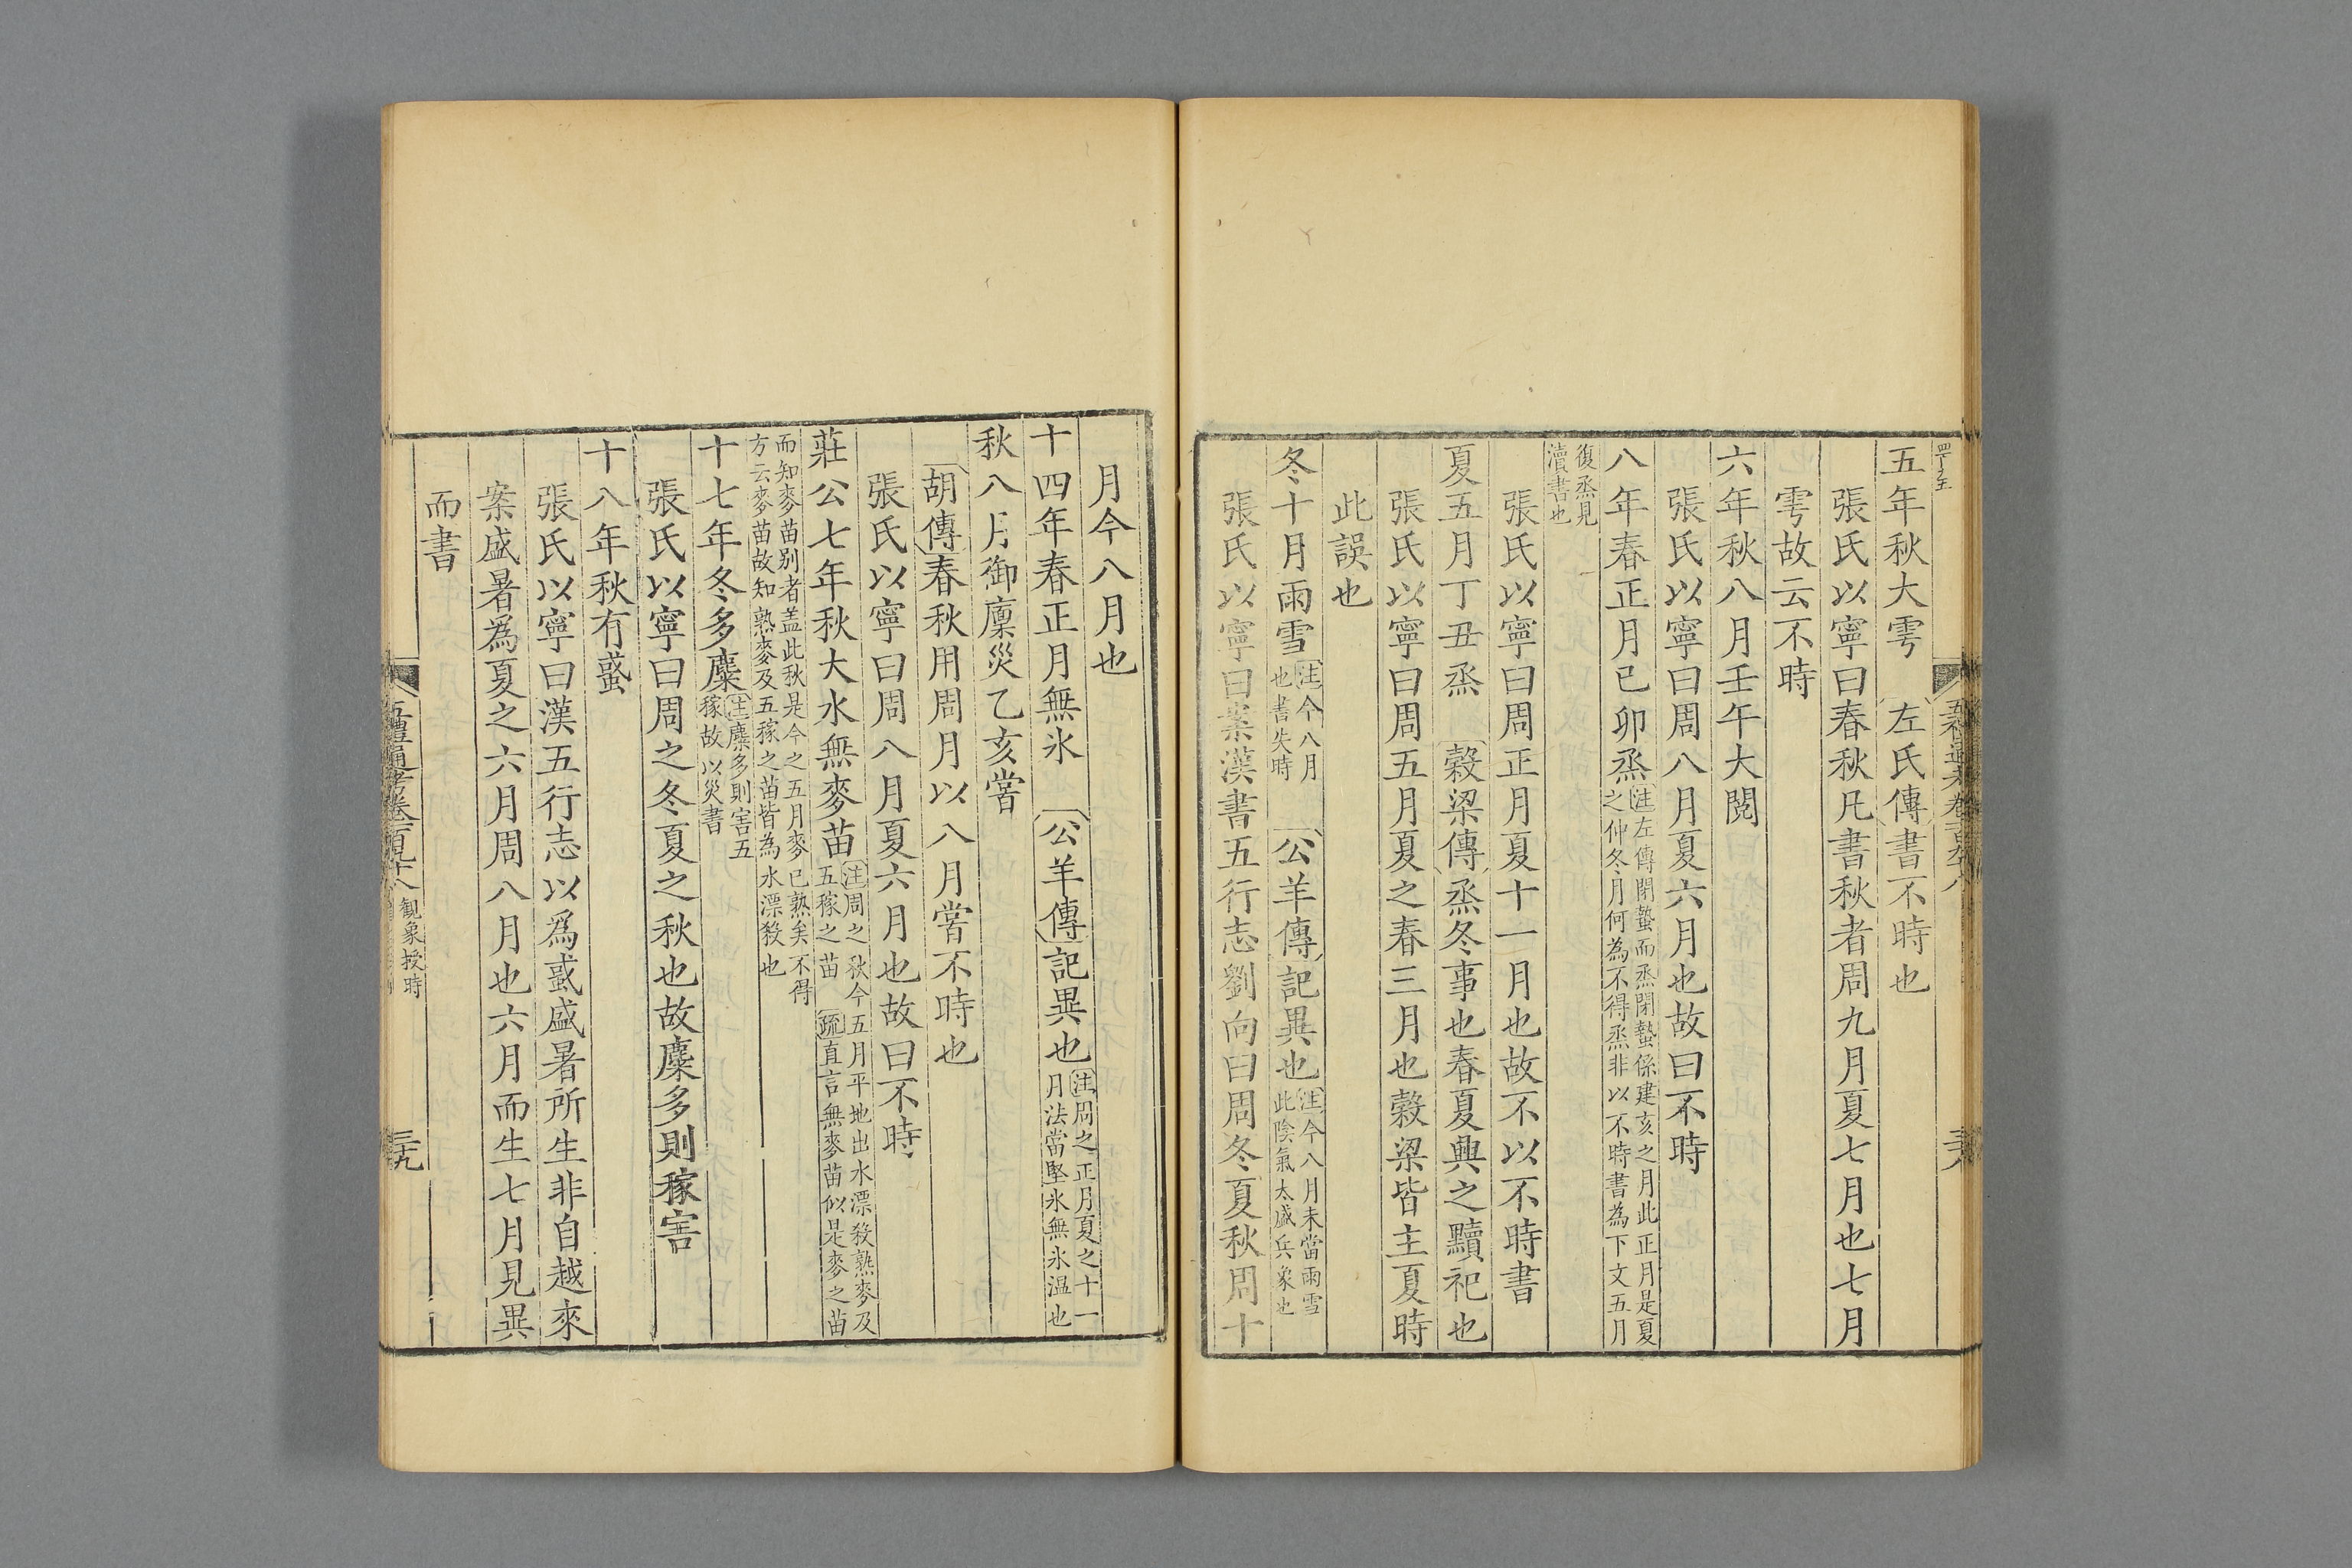 五年秋大雩　左氏傳書不時也
張氏以寧曰春秋凡書秋者周九月夏七月也七月
雩故云不時
六年秋八月壬午大閱
張氏以寧曰周八月夏六月也故曰不時
八年春正月己卯烝注左傳閉蟄而烝閉蟄係建亥之月此正月是夏
之仲冬月何為不得烝非以不時書為下文五月
復烝見
瀆書也
張氏以寧曰周正月夏十一月也故不以不時書
夏五月丁丑烝　穀梁傳烝冬事也春夏興之黷祀也
張氏以寧曰周五月夏之春三月也穀梁皆主夏時
此誤也
冬十月雨雪注今八月
也書失時
公羊傳記異也注今八月未當雨雪
此陰氣太盛兵象也
張氏以寧曰案漢書五行志劉向曰周冬夏秋周十
月今八月也
十四年春正月無氷　公羊傳記異也注周之正月夏之十一
月法當堅氷無氷温也
秋八月御廩災乙亥嘗
胡傳春秋用周月以八月嘗不時也
張氏以寧曰周八月夏六月也故曰不時
莊公七年秋大水無麥苗注周之秋今五月平地出水漂殺熟麥及
五稼之苗　疏直言無麥苗似是麥之苗
而知麥苗别者盖此秋是今之五月麥已熟矣不得
方云麥苗故知熟麥及五稼之苗皆為水漂殺也
十七年冬多麋注麋多則害五
稼故以災書
張氏以寧曰周之冬夏之秋也故麋多則稼害
十八年秋有蜮
張氏以寧曰漢五行志以爲蜮盛暑所生非自越來
案盛暑為夏之六月周八月也六月而生七月見異
而書
五禮通考卷一百九十八　觀象授時
三十九